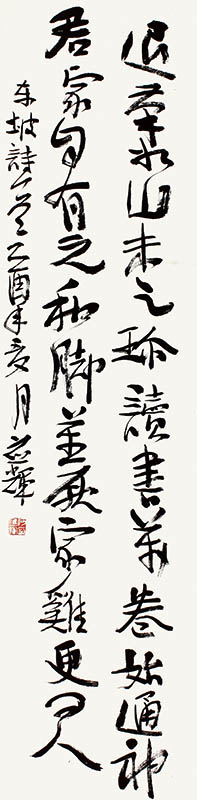 退筆如山未足珍讀書萬卷始通神
君家自有元和脚莫厭家雞更问人
东坡詩一首乙酉年夏月